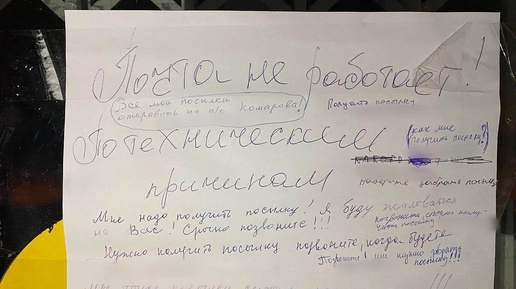 Почта не работает!
Все мои посылки
отправить на о/п Комарова!
Получить посылку
По техническим
(как мне
получить посылку?)
причинам
помогите забрать посылку
Мне надо получить посылку! Я буду жаловаться
на Вас! Срочно позвоните!!!
Нужно получить посылку позвоните, когда будете
Помогите! мне нужно забрать
посылку!!!